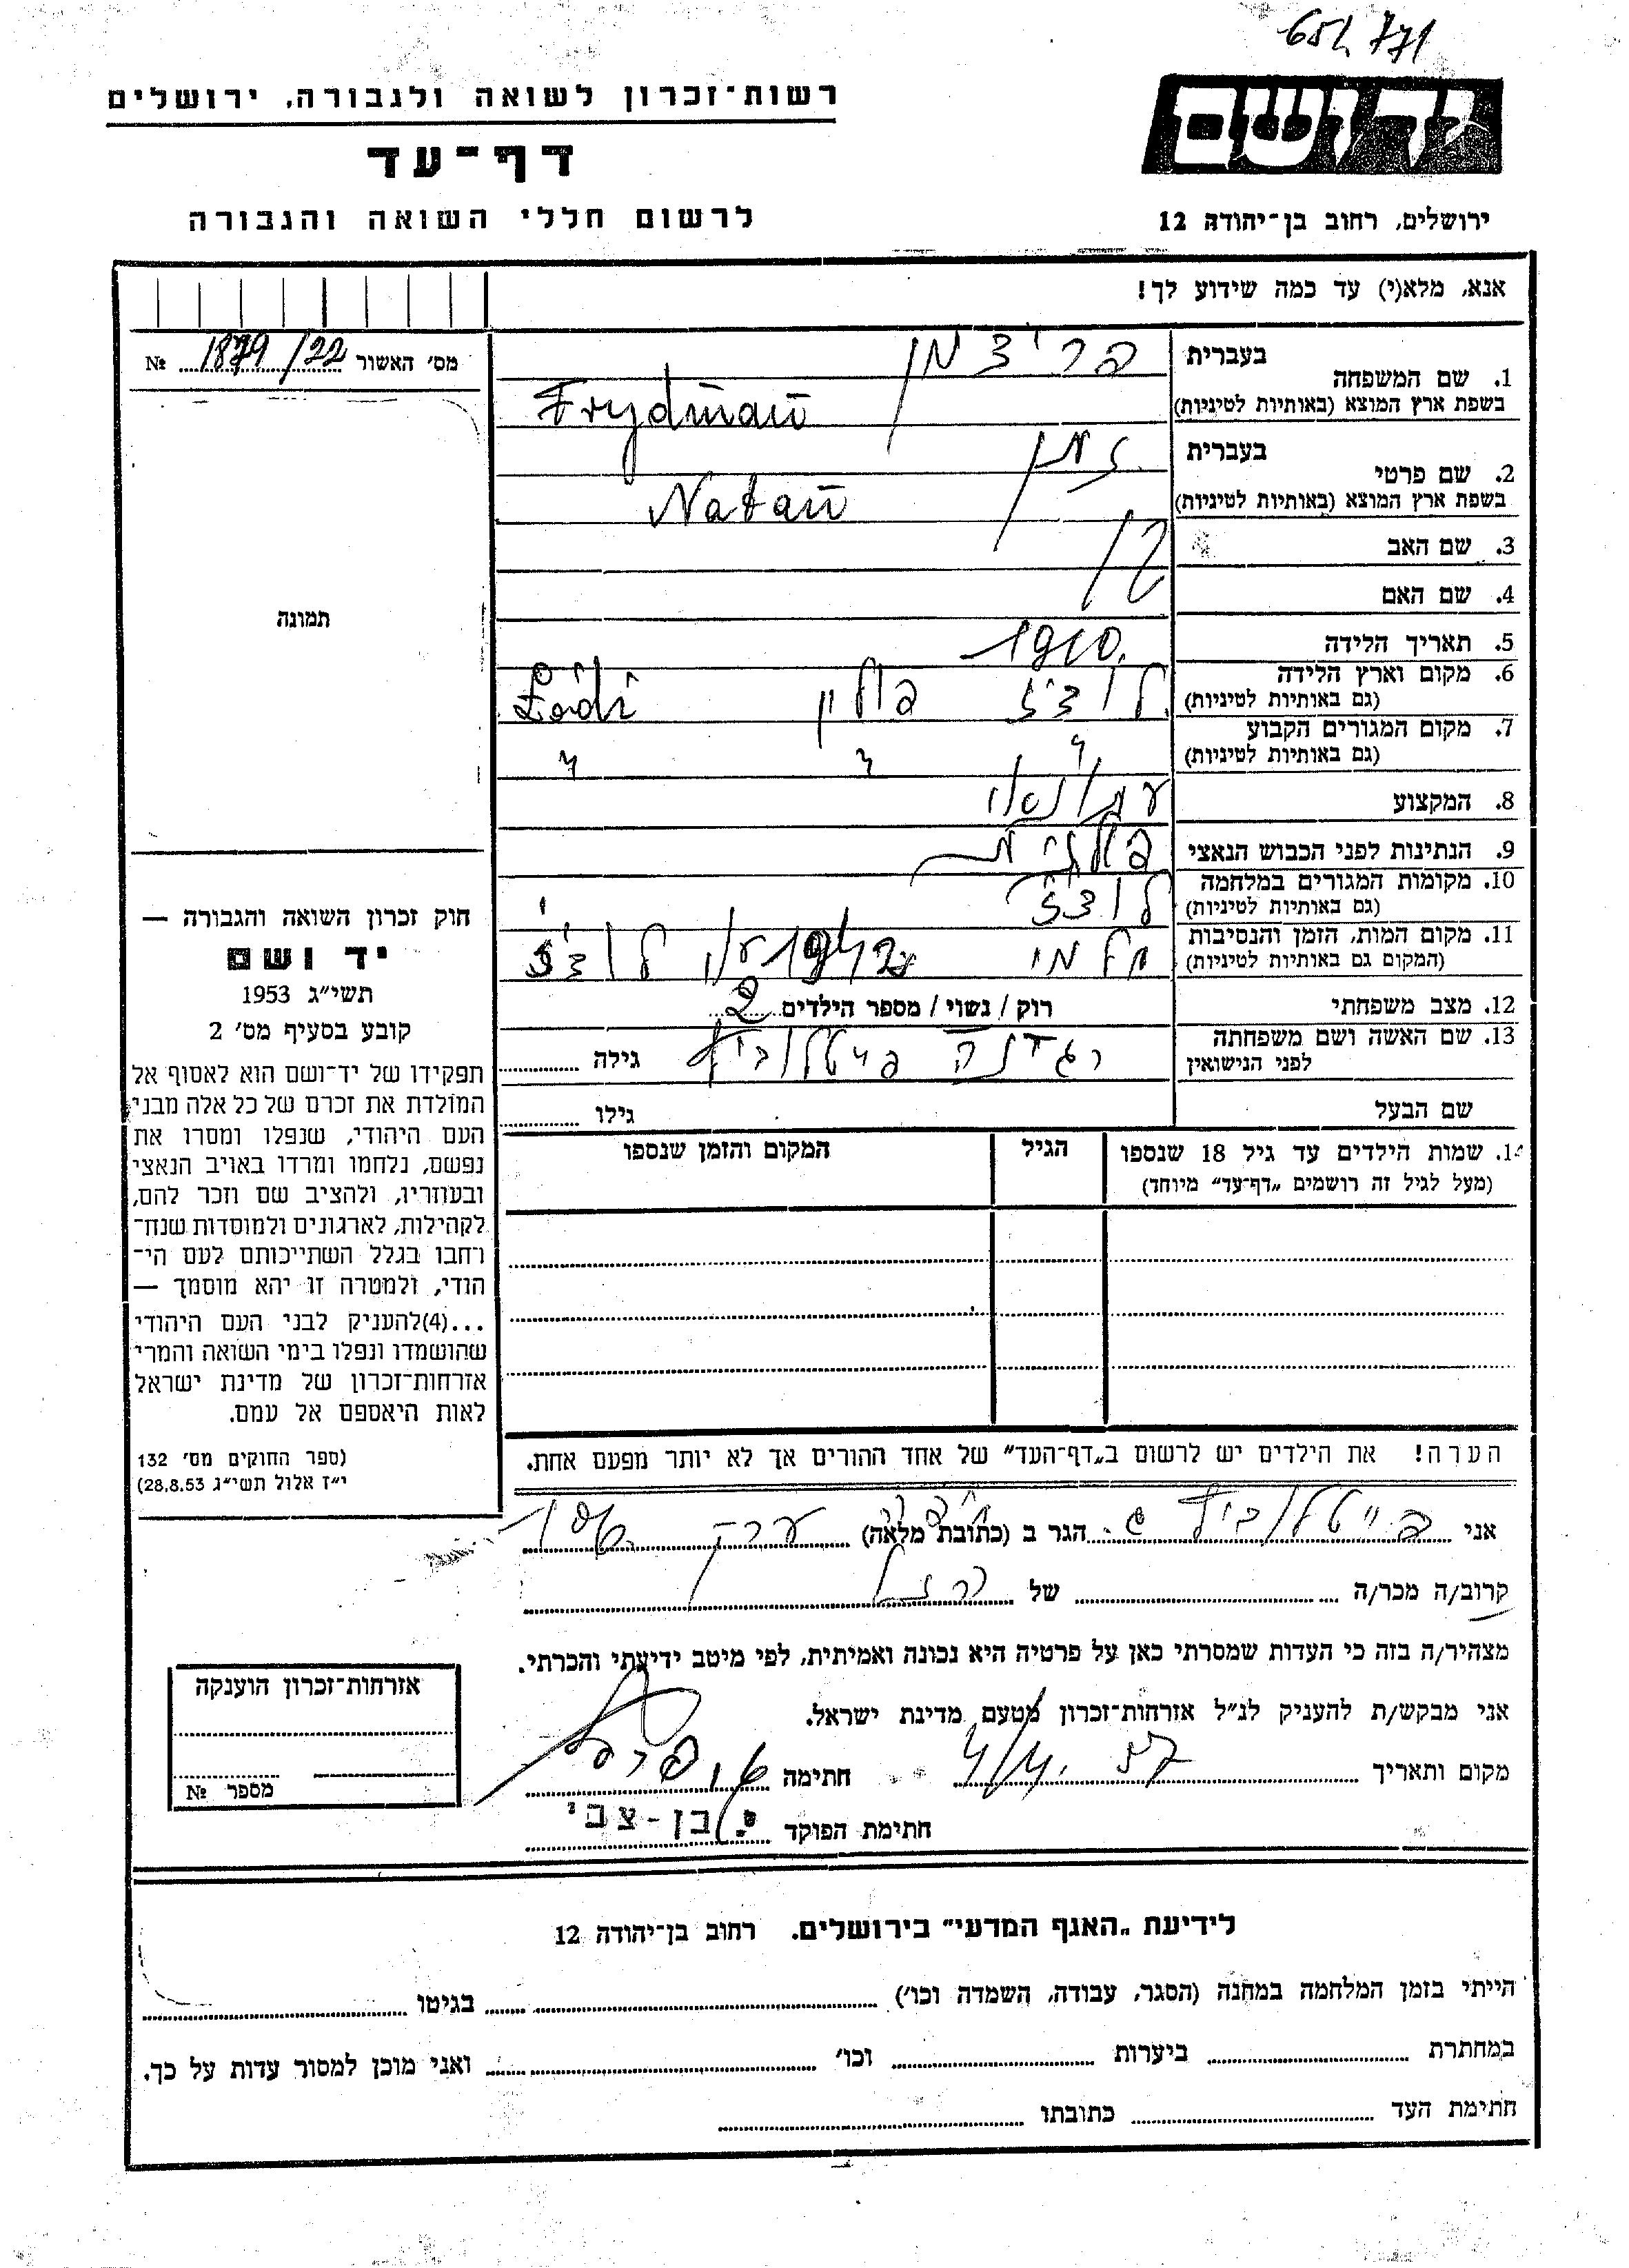 651 771
יד ושם
ירושלים, רחוב בן־יהודה 12
רשות־זכרון לשואה ולגבורה, ירושלים
דף־עד
לרשום חללי השואה והגבורה
אנא, מלא(י) עד כמה שידוע לך!
מס׳ האשור 1879/22 №
תמונה
1. שם המשפחה
בעברית
בשפת ארץ המוצא (באותיות לטיניות) Frydman
2. שם פרטי
בעברית נתן
בשפת ארץ המוצא (באותיות לטיניות) Natan
3. שם האב
4. שם האם
5. תאריך הלידה 1910
6. מקום וארץ הלידה
(גם באותיות לטיניות) לודז׳ פולין Łódź
7. מקום המגורים הקבוע
(גם באותיות לטיניות) " " "
8. המקצוע
9. הנתינות לפני הכבוש הנאצי פולנית
10. מקומות המגורים במלחמה
(גם באותיות לטיניות) לודז׳
11. מקום המות, הזמן והנסיבות
(המקום גם באותיות לטיניות) לודז׳
12. מצב משפחתי רוק / נשוי / מספר הילדים 2
13. שם האשה ושם משפחתה
לפני הנישואין גילה
שם הבעל גילו
14. שמות הילדים עד גיל 18 שנספו
(מעל לגיל זה רושמים „דף־עד״ מיוחד)
הגיל
המקום והזמן שנספו
הערה! את הילדים יש לרשום ב„דף־העד״ של אחד ההורים אך לא יותר מפעם אחת.
חוק זכרון השואה והגבורה —
יד ושם
תשי״ג 1953
קובע בסעיף מס׳ 2
תפקידו של יד־ושם הוא לאסוף אל
המולדת את זכרם של כל אלה מבני
העם היהודי, שנפלו ומסרו את
נפשם, נלחמו ומרדו באויב הנאצי
ובעוזריו, ולהציב שם וזכר להם,
לקהילות, לארגונים ולמוסדות שנח־
רחבו בגלל השתייכותם לעם הי־
הודי, ולמטרה זו יהא מוסמך —
...(4)להעניק לבני העם היהודי
שהושמדו ונפלו בימי השואה והמרי
אזרחות־זכרון של מדינת ישראל
לאות היאספם אל עמם.
(ספר החוקים מס׳ 132
י״ז אלול תשי״ג 28.8.53)
אני הגר ב (כתובת מלאה)
קרוב/ה מכר/ה של
מצהיר/ה בזה כי העדות שמסרתי כאן על פרטיה היא נכונה ואמיתית, לפי מיטב ידיעתי והכרתי.
אני מבקש/ת להעניק לנ״ל אזרחות־זכרון מטעם מדינת ישראל.
מקום ותאריך 57 חתימה
חתימת הפוקד י. בן-צבי
אזרחות־זכרון הוענקה
מספר №
לידיעת „האגף המדעי״ בירושלים. רחוב בן־יהודה 12
הייתי בזמן המלחמה במחנה (הסגר, עבודה, השמדה וכו׳) בגיטו
במחתרת ביערות וכו׳ ואני מוכן למסור עדות על כך.
חתימת העד כתובתו